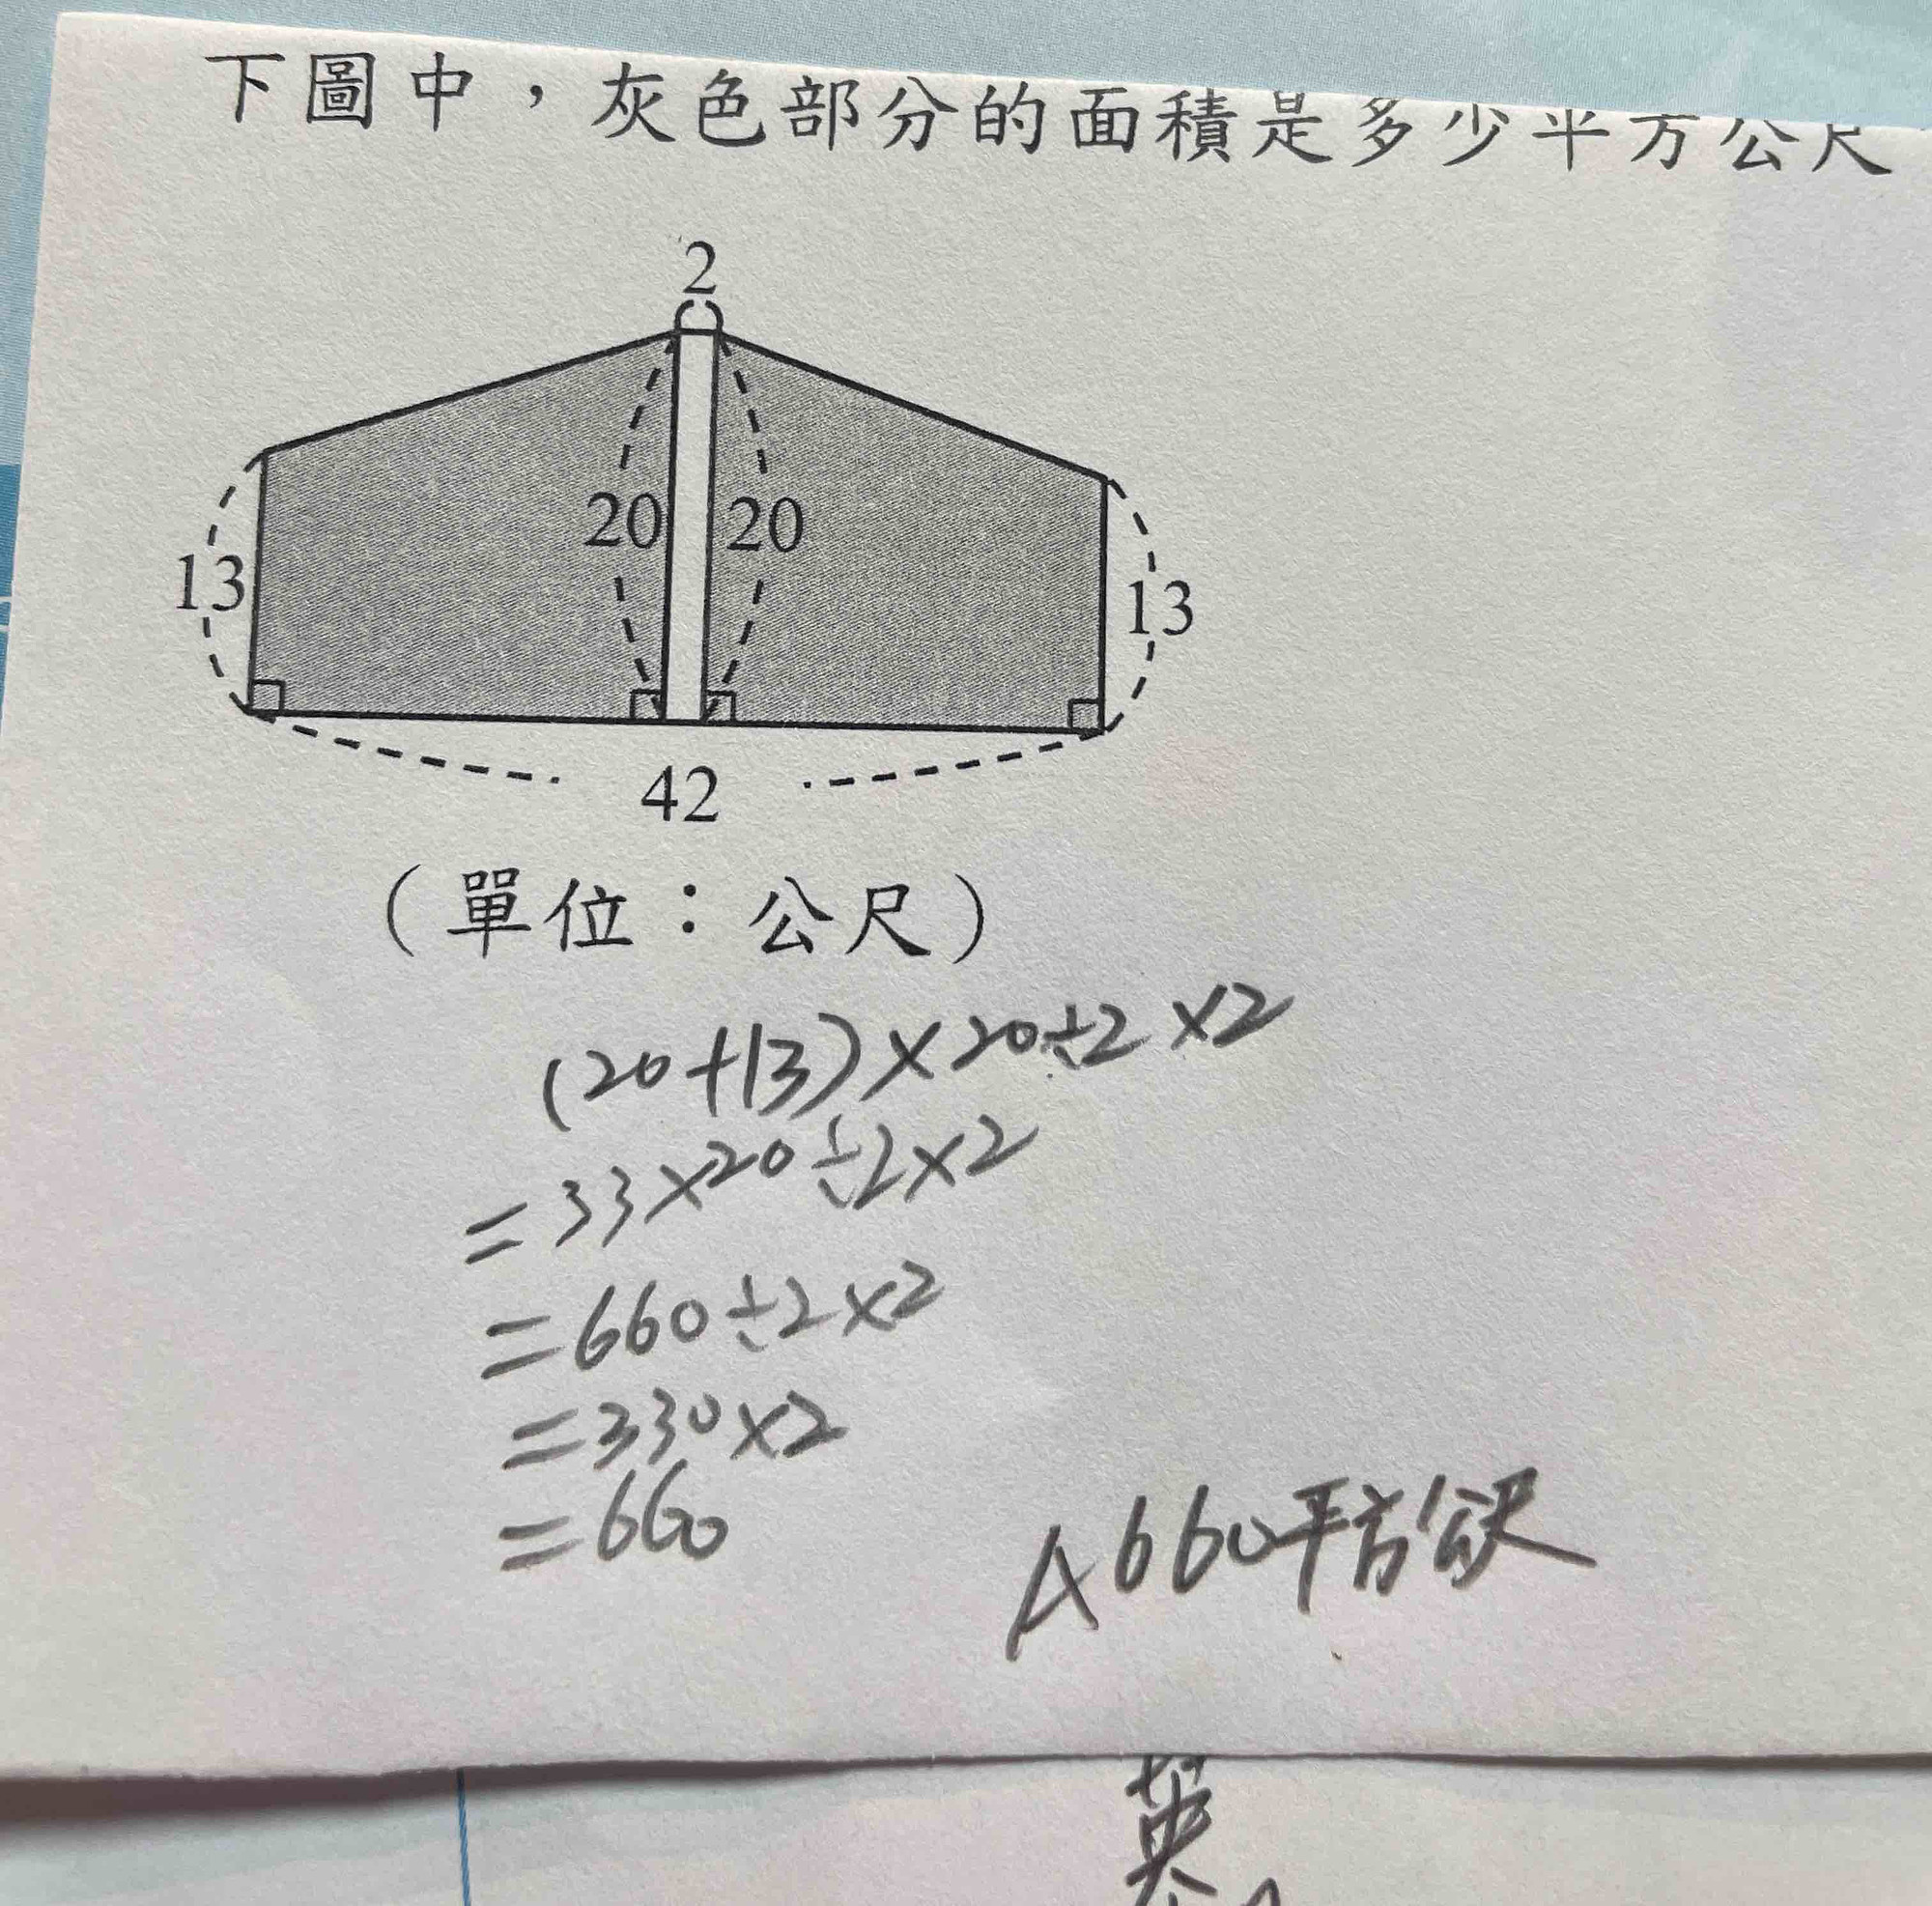 下圖中，灰色部分的面積是多少平方公尺
2
20 20
13 13
42
（單位：公尺）
(20+13)×20÷2×2
=33×20÷2×2
=660÷2×2
=330×2
=660
A 660平方公尺
英